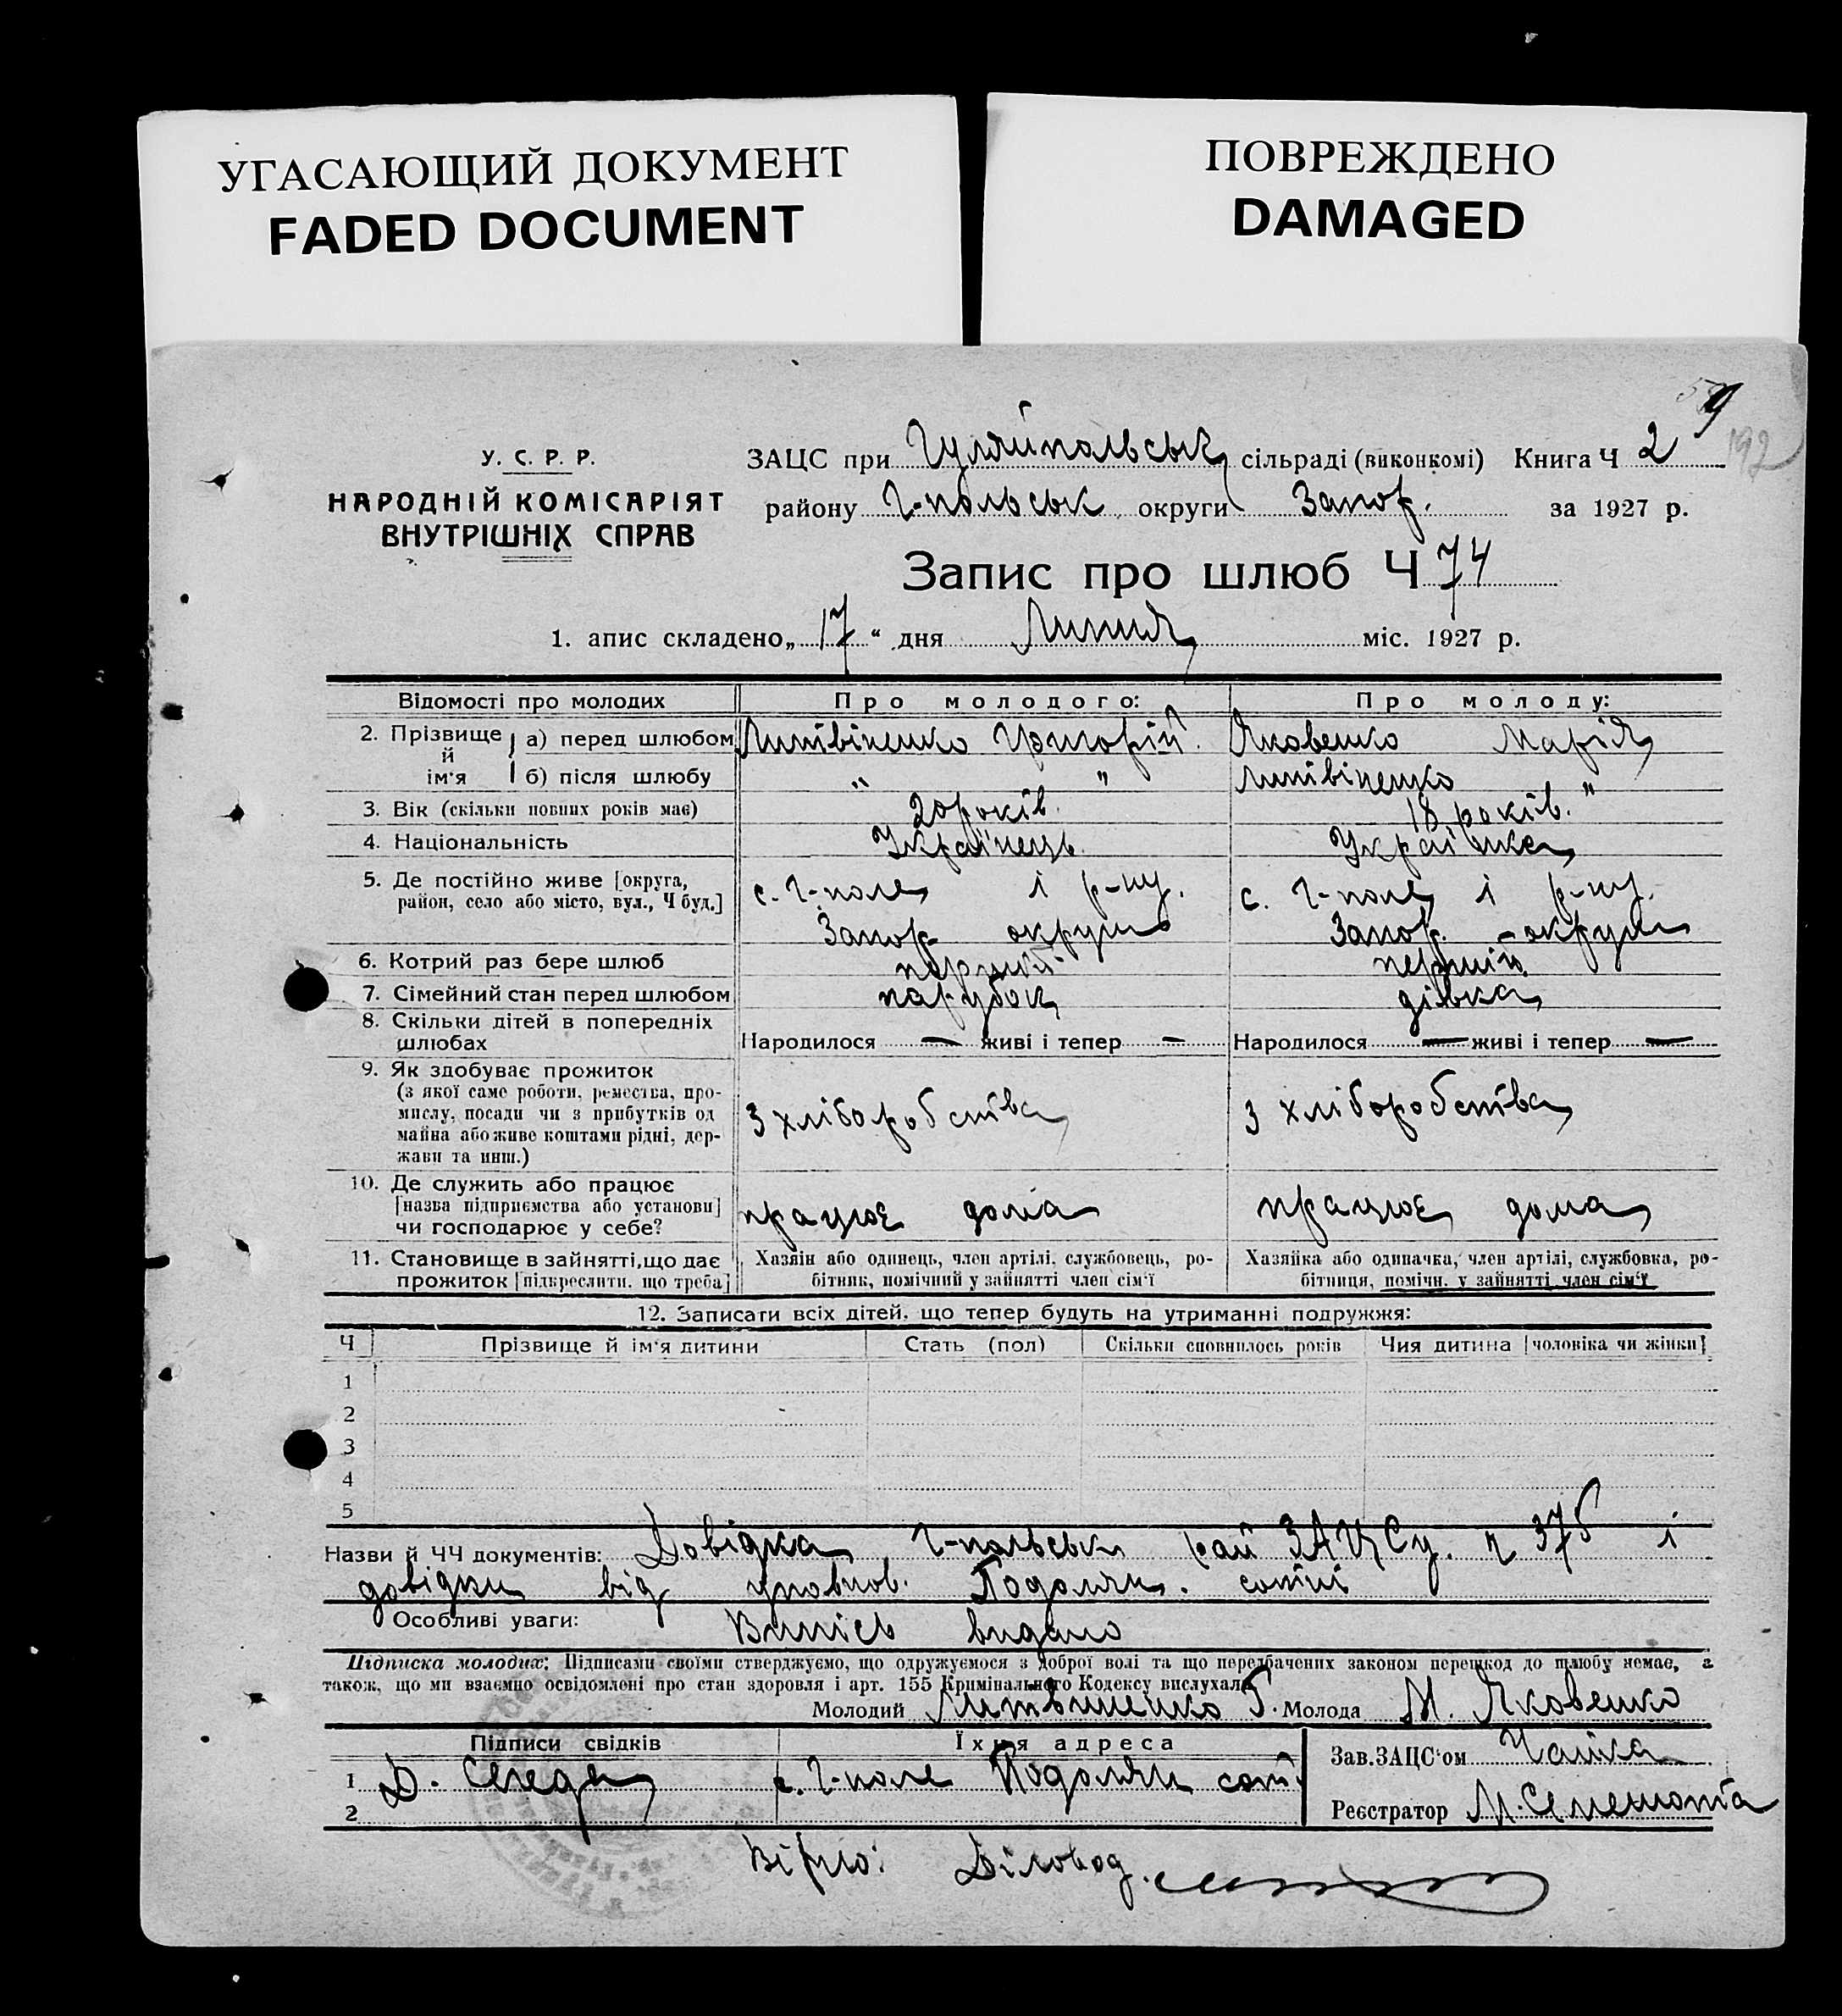 УГАСАЮЩИЙ ДОКУМЕНТ
FADED DOCUMENT
ПОВРЕЖДЕНО
DAMAGED
9
192
У. С. Р. Р.
НАРОДНІЙ КОМІСАРІЯТ
ВНУТРІШНІХ СПРАВ
ЗАЦС при Гуляйпольськ сільраді (виконкомі) Книга Ч 2
району Г-польськ округи Запор. за 1927 р.
Запис про шлюб Ч 74
1. апис складено „17“ дня Липня міс. 1927 р.
Відомості про молодих Про молодого: Про молоду:
2. Прізвище й ім'я а) перед шлюбом Литвіненко Григорій. Яковенко Марія
б) після шлюбу " " Литвіненко "
3. Вік (скільки повних років має) 20 років. 18 років.
4. Національність Українець Українка
5. Де постійно живе [округа, с. Г-поле і р-ну. с. Г-поле і р-ну.
район, село або місто, вул., Ч буд.] Запор. округи Запор. - округи
6. Котрий раз бере шлюб перший перший
7. Сімейний стан перед шлюбом парубок дівка
8. Скільки дітей в попередніх
шлюбах Народилося — живі і тепер — Народилося — живі і тепер —
9. Як здобуває прожиток
(з якої саме роботи, ремества, про-
мислу, посади чи з прибутків од з хліборобства з хліборобства
майна або живе коштами рідні, дер-
жави та инш.)
10. Де служить або працює
[назва підприємства або установи] працює дома працює дома
чи господарює у себе?
11. Становище в зайнятті, що дає Хазяїн або одинець, член артілі, службовець, ро- Хазяйка або одиначка, член артілі, службовка, ро-
прожиток [підкреслити, що треба] бітник, помічний у зайнятті член сім'ї бітниця, помічн. у зайнятті член сім'ї
12. Записати всіх дітей, що тепер будуть на утриманні подружжя:
Ч Прізвище й ім'я дитини Стать (пол) Скільки сповнилось років Чия дитина [чоловіка чи жінки]
1
2
3
4
5
Назви й ЧЧ документів: Довідка Г-польськ рай ЗАЦСу. ч 375 і
довідки від уповнов. Подолян. сотні
Особливі уваги: Випісь видано
Підписка молодих: Підписами своїми стверджуємо, що одружуємося з доброї волі та що передбачених законом перешкод до шлюбу немає, а
також, що ми взаємно освідомлені про стан здоровля і арт. 155 Кримінального Кодексу вислухали
Молодий Литвиненко Г. Молода М. Яковенко
Підписи свідків Їхня адреса
1 Д. Середа с. Г-поле Подолян сот.
2
Зав.ЗАЦС'ом
Реєстратор
Вірно: Діловод.